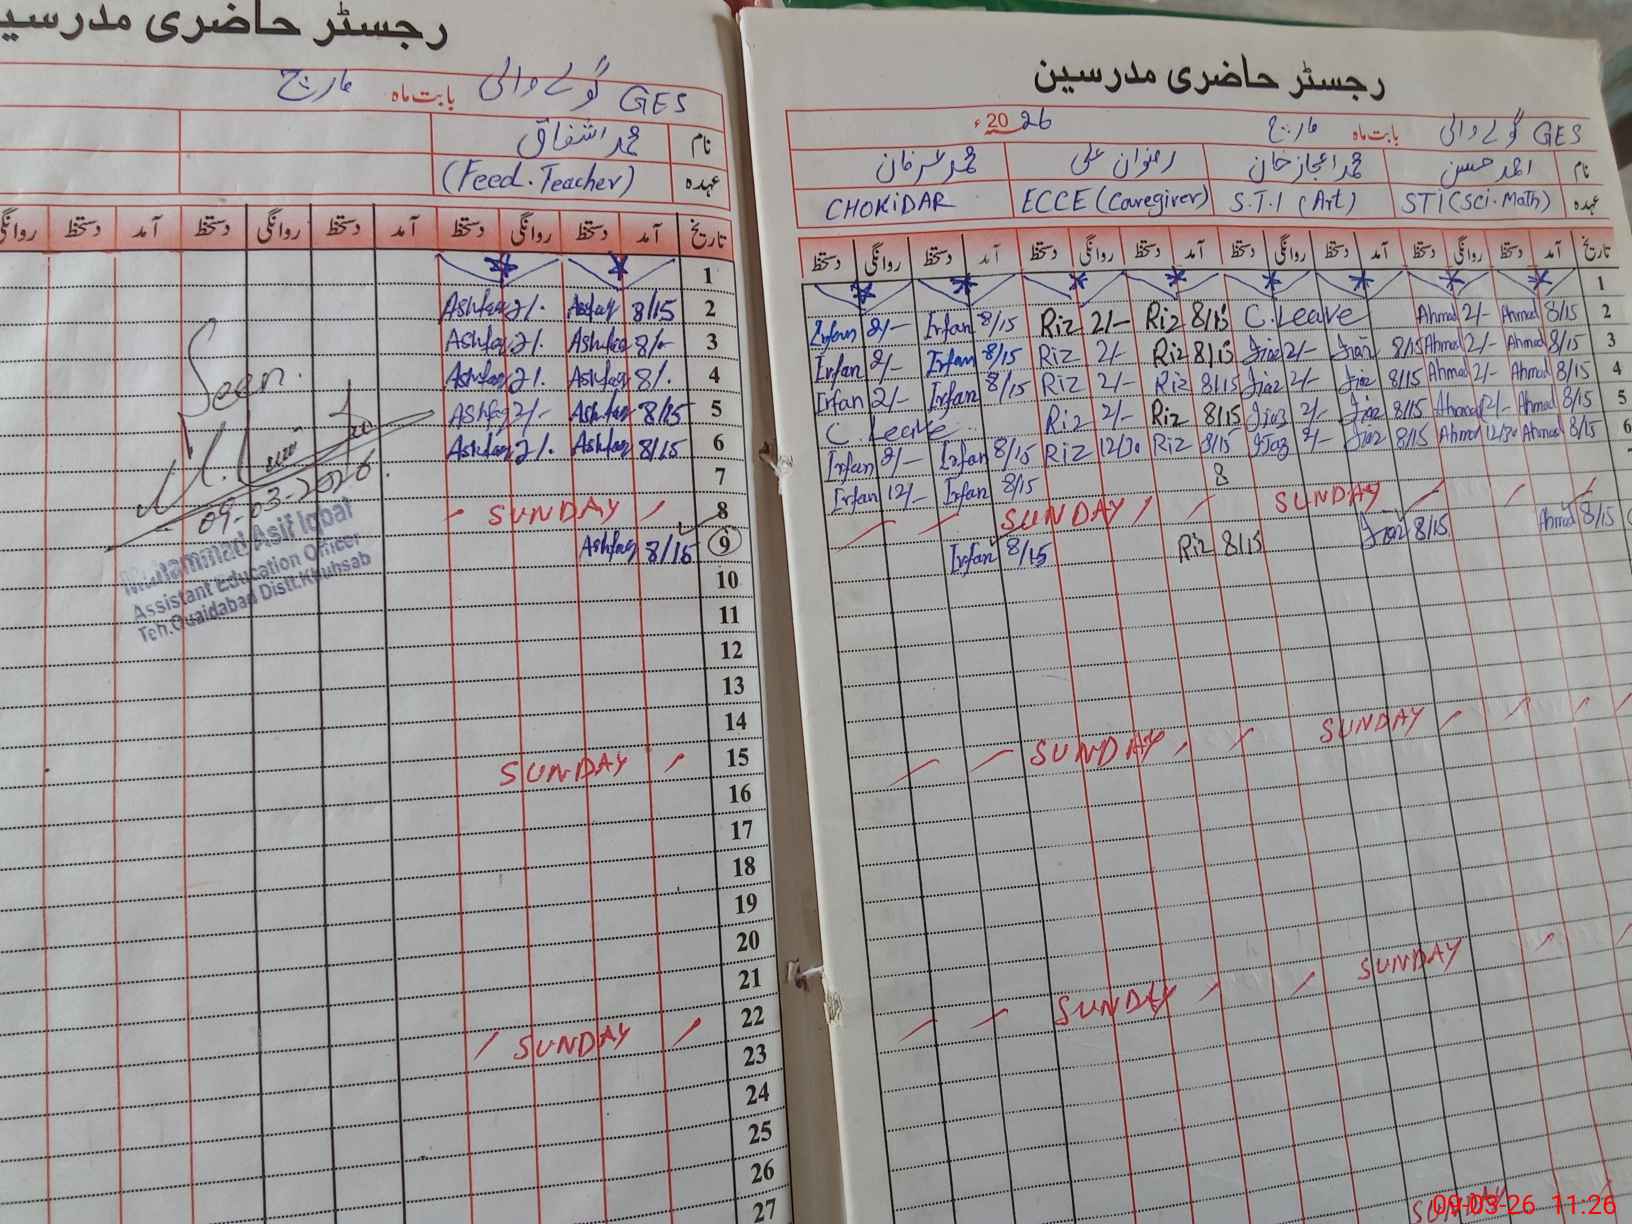 رجسٹر حاضری مدرسین
GES گولے والی بابت ماہ مارچ
نام محمد اشفاق
عہدہ (Feed. Teacher)
تاریخ آمد دستخط روانگی دستخط آمد دستخط روانگی دستخط آمد دستخط روانگی
1
2 8/15 Ashfaq 2/- Ashfaq
3 8/- Ashfaq 2/- Ashfaq
4 8/- Ashfaq 2/- Ashfaq
5 8/15 Ashfaq 2/- Ashfaq
6 8/15 Ashfaq 2/- Ashfaq
7
8 SUNDAY
9 8/15 Ashfaq
10
11
12
13
14
15 SUNDAY
16
17
18
19
20
21
22 SUNDAY
23
24
25
26
27
Seen.
09-03-2026
Muhammad Asif Iqbal
Assistant Education Officer
Teh.Quaidabad Distt.Khuhsab
رجسٹر حاضری مدرسین
GES گولے والی بابت ماہ مارچ 2026ء
نام احمد حسن محمد اعجاز خان رضوان علی محمد عرفان
عہدہ STI (Sci. Math) S.T.I (Art) ECCE (Caregiver) CHOKIDAR
تاریخ آمد دستخط روانگی دستخط آمد دستخط روانگی دستخط آمد دستخط روانگی دستخط آمد دستخط روانگی دستخط
1
2 8/15 Ahmad 2/- Ahmad C. Leave 8/15 Riz 2/- Riz 8/15 Irfan 2/- Irfan
3 8/15 Ahmad 2/- Ahmad 8/15 Jiaz 2/- Jiaz 8/15 Riz 2/- Riz 8/15 Irfan 2/- Irfan
4 8/15 Ahmad 2/- Ahmad 8/15 Jiaz 2/- Jiaz 8/15 Riz 2/- Riz 8/15 Irfan 2/- Irfan
5 8/15 Ahmad 2/- Ahmad 8/15 Jiaz 2/- Jiaz 8/15 Riz 2/- Riz C. Leave
6 8/15 Ahmad 12/30 Ahmad 8/15 Jiaz 2/- Jiaz 8/15 Riz 12/30 Riz 8/15 Irfan 2/- Irfan
8 8/15 Irfan 12/- Irfan
SUNDAY SUNDAY
8/15 Ahmad 8/15 Jiaz 8/15 Riz 8/15 Irfan
SUNDAY SUNDAY
SUNDAY SUNDAY
09-03-26 11:26